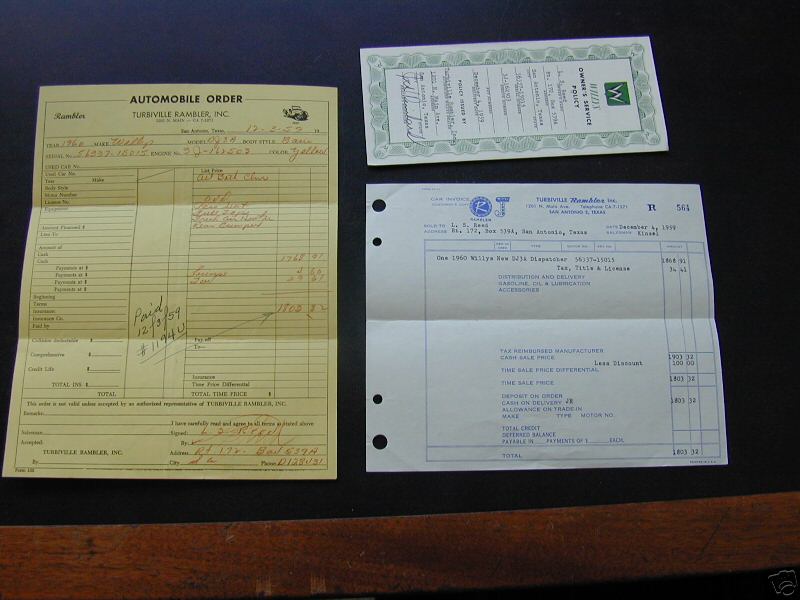 AUTOMOBILE ORDER
Rambler
TURBIVILLE RAMBLER, INC.
1201 N. MAIN — CA 7-1371
San Antonio, Texas, 12-3-59 19
YEAR 1960 MAKE Willys MODEL DJ3A BODY STYLE
SERIAL No. 56337-15015 ENGINE No. COLOR Yellow
USED CAR No.
Used Car No. List Price
Year Make
Body Style
Motor Number
License No.
Equipment
Rear Seat
Fresh Air Heater
Rear Bumper
Interest Financed $
Lien To
Amount of
Cash
Cash 1768 91
Payments at $
Payments at $
Payments at $
Payments at $
Beginning
Terms
Insurance 1803 32
Insurance Co.
Paid by
Paid
12/3/59
#1940
Collision deductible $ Pay-off
To
Comprehensive $
Credit Life $
Insurance
TOTAL INS $ Time Price Differential
TOTAL TOTAL TIME PRICE $
This order is not valid unless accepted by an authorized representative of TURBIVILLE RAMBLER, INC.
Remarks:
I have carefully read and agree to all terms as stated above
Salesman: Signed: L S Reed
Accepted: By:
TURBIVILLE RAMBLER, INC. Address: Rt 172 Box 539A
By: City S A Phone:
Form 100
OWNER'S SERVICE
POLICY
W
L. S. Reed
San Antonio, Texas
56337-15015
POLICY ISSUED BY
Turbiville Rambler, Inc.
1201 N. Main Ave.
San Antonio, Texas
CAR INVOICE
R
RAMBLER
TURBIVILLE Rambler Inc.
1201 N. Main Ave. Telephone CA. 7-1371
SAN ANTONIO 5, TEXAS
R 564
SOLD TO L. S. Reed DATE December 4, 1959
ADDRESS Rt. 172, Box 539A, San Antonio, Texas SALESMAN Kinsel
NEW OR USED TYPE KEY NO. AMOUNT
One 1960 Willys New DJ3A Dispatcher 56337-15015 1868 91
Tax, Title & License 34 41
DISTRIBUTION AND DELIVERY
GASOLINE, OIL & LUBRICATION
ACCESSORIES
TAX REIMBURSED MANUFACTURER
CASH SALE PRICE 1903 32
Less Discount 100 00
TIME SALE PRICE DIFFERENTIAL
TIME SALE PRICE 1803 32
DEPOSIT ON ORDER
CASH ON DELIVERY JR 1803 32
ALLOWANCE ON TRADE-IN
MAKE TYPE MOTOR NO.
TOTAL CREDIT
DEFERRED BALANCE
PAYABLE IN PAYMENTS OF $ EACH.
TOTAL 1803 32